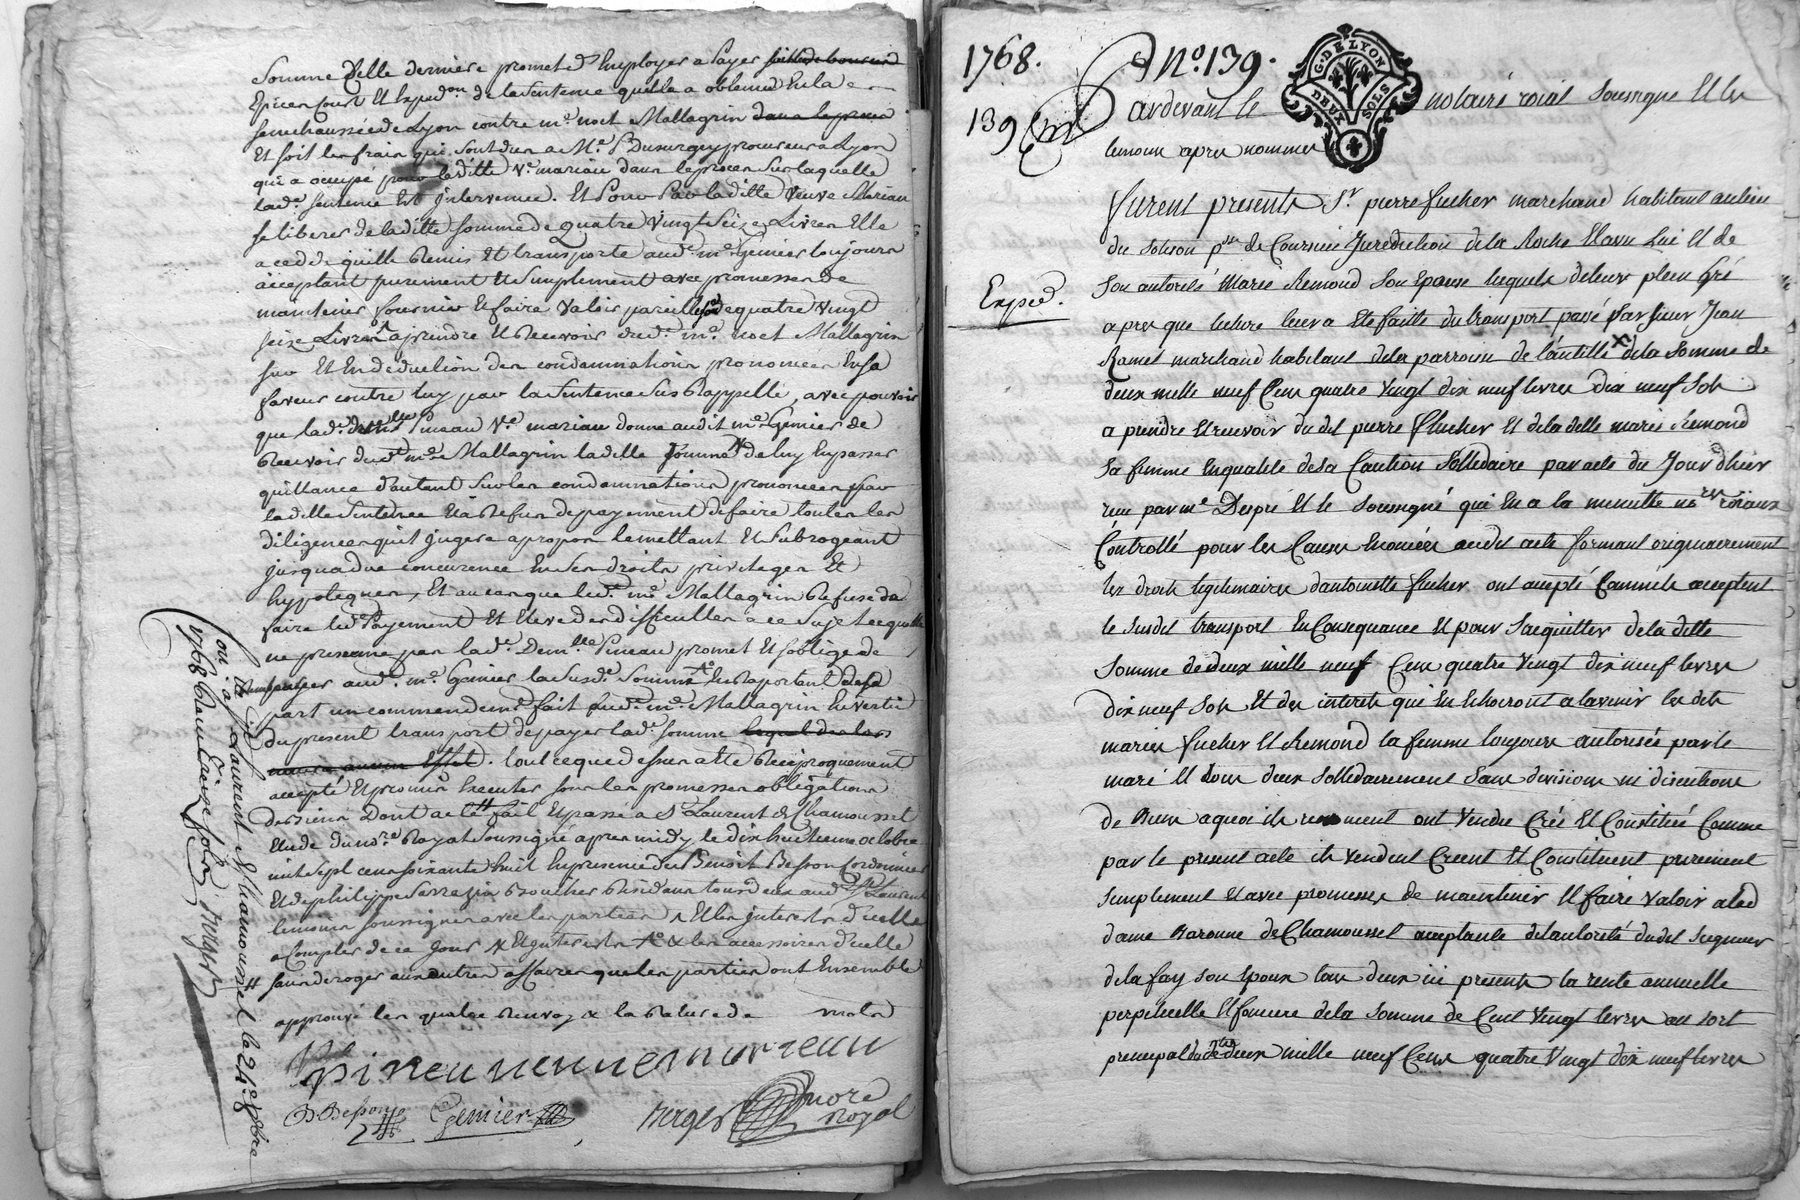 Somme Celle derniere promet d'Employer a Payer
Epicer Court Et Exped.on de la Sentence quelle a obtenue En la
senechaussée de Lyon contre m.e noel Mallagrin dans le procès
Et soit les frais qui sont dus a M.e Dusurgey procureur a Lyon
qui a occupé pour laditte V.e mariau dans le procès sur laquelle
lad.e sentence Est Intervenue. Et Pour Par laditte Veuve Mariau
se liberer de laditte somme de quatre Vingt Seize Livres Elle
a cedé quitté Remis Et transporté aud.t m.e Genier toujours
acceptant purement Et simplement avec promesse de
maintenir fournir Et faire Valoir pareille so.e de quatre Vingt
seize Livres a prendre Et Recevoir dud.t m.e noel Mallagrin
sur Et En deduction des condamnations prononcées En sa
faveur contre luy par la Sentence Sus Rappellé, avec pouvoir
que lad.e d.elle Pineau V.e mariau donne audit m.e Genier de
Recevoir dud.t m.e Mallagrin laditte somme de luy En passer
quittance d'autant Sur les condamnations prononcées par
laditte Sentence Et a Refus de payement de faire toutes les
diligences qu'il Jugera a propos le mettant Et Subrogeant
jusqua due concurence En Ses droits privileges Et
hypoteques, Et au cas que led.t m.e Mallagrin Refuse de
faire led.t Payement Et Eleve des difficultés a ce Sujet ce quelle
ne presume pas lad.e Dem.lle Pineau promet Et s'oblige de
Rembourser aud.t m.e Genier la Susd.e Somme En Raportant de sa
part un commendem.t fait aud.t m.e Mallagrin En Vertu
du present transport de payer lad.e somme
Effet. tout ce que dessus a Eté Reciproquement
accepté Et promis Executer sous les promesses obligations
des siens Dont acte fait Et passé a S.t Laurent de Chamousset
Etude du no.re Royal Soussigné apres midy le dix huitieme octobre
mil sept cens soixante huit En presence de s.r Benoit Besson Cordonnier
Et de philippe Sarrazin Boucher Residans tous deux aud.t S.t Laurent
temoins soussignés avec les parties & Et les Interests d'icelle
a Compter de ce Jour & Et Interests & les accessoires d'icelle
sans deroger aux autres affaires que les parties ont Ensemble
approuvé les quatre Renvoy & la Rature de mots
Pineu veuve mariau
B Besson Genier Berger no.re Royal
Con.lé a S.t Laurent de Chamousset le 24.e 8bre
1768 Reçu treize sols Berger
1768. N.o 139.
139
G. DE LYON
DEUX SOLS
Pardevant le notaire roial Soussigné Et les
temoins apres nommés
furent presents S.r pierre fucher marchand habitant au lieu
du Soleson p.sse de Coursieu Jurediction de la Roche Et avec Lui Et de
Exped.
Son autorité Marie Remond Son Epouse lesquels de leur plein Gré
apres que lecture leur a Eté faitte du transport passé Par sieur Jean
Ramel marchand habitant de la parroisse de Lantillé de la Somme de
deux mille neuf Cens quatre Vingt dix neuf livres dix neuf Sols
a prendre Et recevoir du dit pierre fucher Et de la ditte marie Remond
Sa femme En qualité de Sa Caution Sollidaire par acte du Jour d'hier
reçu par m.e Despré Et le Soussigné qui En a la minutte no.res roiaux
Contrôllé pour les Causes Enoncées audit acte formant originairement
les droits legitimaires d'antoinette fucher ont acepté Comme ils acceptent
le Susdit transport En Consequance Et pour S'acquitter de la ditte
Somme de deux mille neuf Cens quatre Vingt dix neuf livres
dix neuf Sols Et des interets qui En Echoeront a lavenir les dits
mariés fucher Et Remond la femme toujours autorisée par le
mari Et tous deux Sollidairement Sans division ni discution
de Biens a quoi ils renoncent ont Vendu Créé Et Constitué Comme
par le present acte ils Vendent Creent Et Constituent purement
Simplement Et avec promesse de maintenir Et faire Valoir a lad.
dame Baronne de Chamousset acceptante de l'autorité dudit Seigneur
de la fay Son Epoux tous deux ici presents la rente annuelle
perpetuelle Et fonciere de la Somme de Cent Vingt livres au Sort
principal de deux mille neuf Cens quatre Vingt dix neuf livres